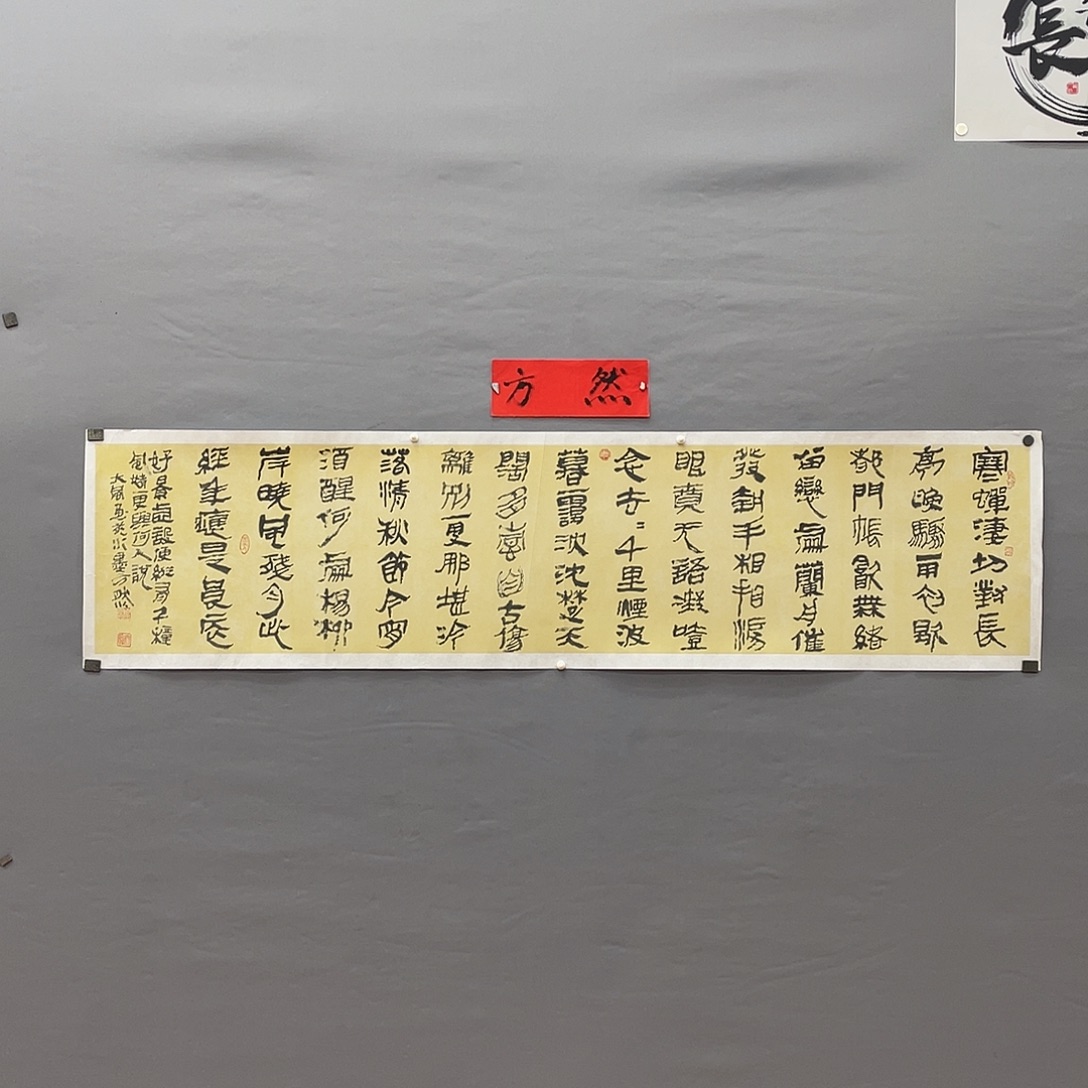 長
方然
寒蟬淒切對長
亭晚驟雨初歇
都門帳飲無緒
留戀處蘭舟催
發執手相看淚
眼竟无語凝噎
念去々千里煙波
暮靄沈沈楚天
闊多情自古傷
離別更那堪冷
落清秋節今宵
酒醒何處楊柳
岸曉風殘月此
經年應是良辰
好景虛設便縱有千種
風情更與何人說
方然